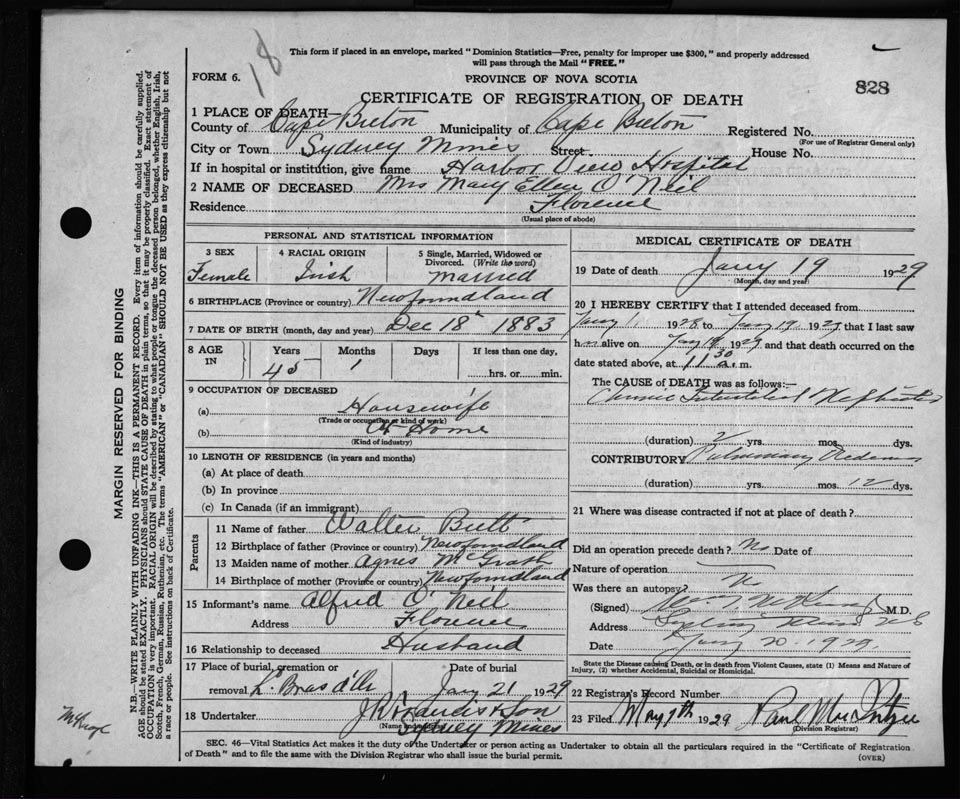 18
This form if placed in an envelope, marked "Dominion Statistics—Free, penalty for improper use $300," and properly addressed
will pass through the Mail "FREE."
FORM 6.
PROVINCE OF NOVA SCOTIA
828
CERTIFICATE OF REGISTRATION OF DEATH
1 PLACE OF DEATH—
County of Cape Breton Municipality of Cape Breton Registered No.
(For use of Registrar General only)
City or Town Sydney Mines Street House No.
If in hospital or institution, give name Harbor View Hospital
2 NAME OF DECEASED Mrs Mary Ellen O'Neil
Residence Florence
(Usual place of abode)
PERSONAL AND STATISTICAL INFORMATION
3 SEX 4 RACIAL ORIGIN 5 Single, Married, Widowed or Divorced. (Write the word)
Female Irish Married
6 BIRTHPLACE (Province or country) Newfoundland
7 DATE OF BIRTH (month, day and year) Dec 18th 1883
8 AGE IN Years Months Days If less than one day,
45 1 hrs. or min.
9 OCCUPATION OF DECEASED
(a) Housewife
(Trade or occupation or kind of work)
(b) At Home
(Kind of industry)
10 LENGTH OF RESIDENCE (in years and months)
(a) At place of death
(b) In province
(c) In Canada (if an immigrant)
Parents
11 Name of father Walter Butt
12 Birthplace of father (Province or country) Newfoundland
13 Maiden name of mother Agnes McGrath
14 Birthplace of mother (Province or country) Newfoundland
15 Informant's name Alfred O'Neil
Address Florence
16 Relationship to deceased Husband
17 Place of burial, cremation or Date of burial
removal L. Bras d'Or Jan 21 1929
18 Undertaker & Son
(Name and
Sydney Mines
MEDICAL CERTIFICATE OF DEATH
19 Date of death Jany 19 1929
(Month, day and year)
20 I HEREBY CERTIFY that I attended deceased from
Jany 1 1928 to Jany 19 1929 that I last saw
h alive on Jany 1929 and that death occurred on the
date stated above, at 11 30 a. m.
The CAUSE of DEATH was as follows:—
Chronic Interstitial Nephritis
(duration) 2 yrs. mos. dys.
CONTRIBUTORY Pulmonary Oedema
(duration) yrs. mos. 12 dys.
21 Where was disease contracted if not at place of death?
Did an operation precede death? No Date of
Nature of operation
Was there an autopsy? No
(Signed) M.D.
Address Sydney Mines NS
Date Jany 20. 1929.
State the Disease causing Death, or in death from Violent Causes, state (1) Means and Nature of
Injury, (2) whether Accidental, Suicidal or Homicidal.
22 Registrar's Record Number
23 Filed May 7th 1929 Paul MacIntyre
(Division Registrar)
SEC. 46—Vital Statistics Act makes it the duty of the Undertaker or person acting as Undertaker to obtain all the particulars required in the "Certificate of Registration
of Death" and to file the same with the Division Registrar who shall issue the burial permit.
(OVER)
MARGIN RESERVED FOR BINDING
N.B.—WRITE PLAINLY WITH UNFADING INK—THIS IS A PERMANENT RECORD. Every item of information should be carefully supplied.
AGE should be stated EXACTLY. PHYSICIANS should STATE CAUSE OF DEATH in plain terms, so that it may be properly classified. Exact statement of
OCCUPATION is very important. RACIAL ORIGIN will be described by stating to what people or tongue the deceased person belonged, whether English, Irish,
Scotch, French, German, Russian, Ruthenian, etc. The terms "AMERICAN" or "CANADIAN" SHOULD NOT BE USED as they express citizenship but not
a race or people. See instructions on back of Certificate.